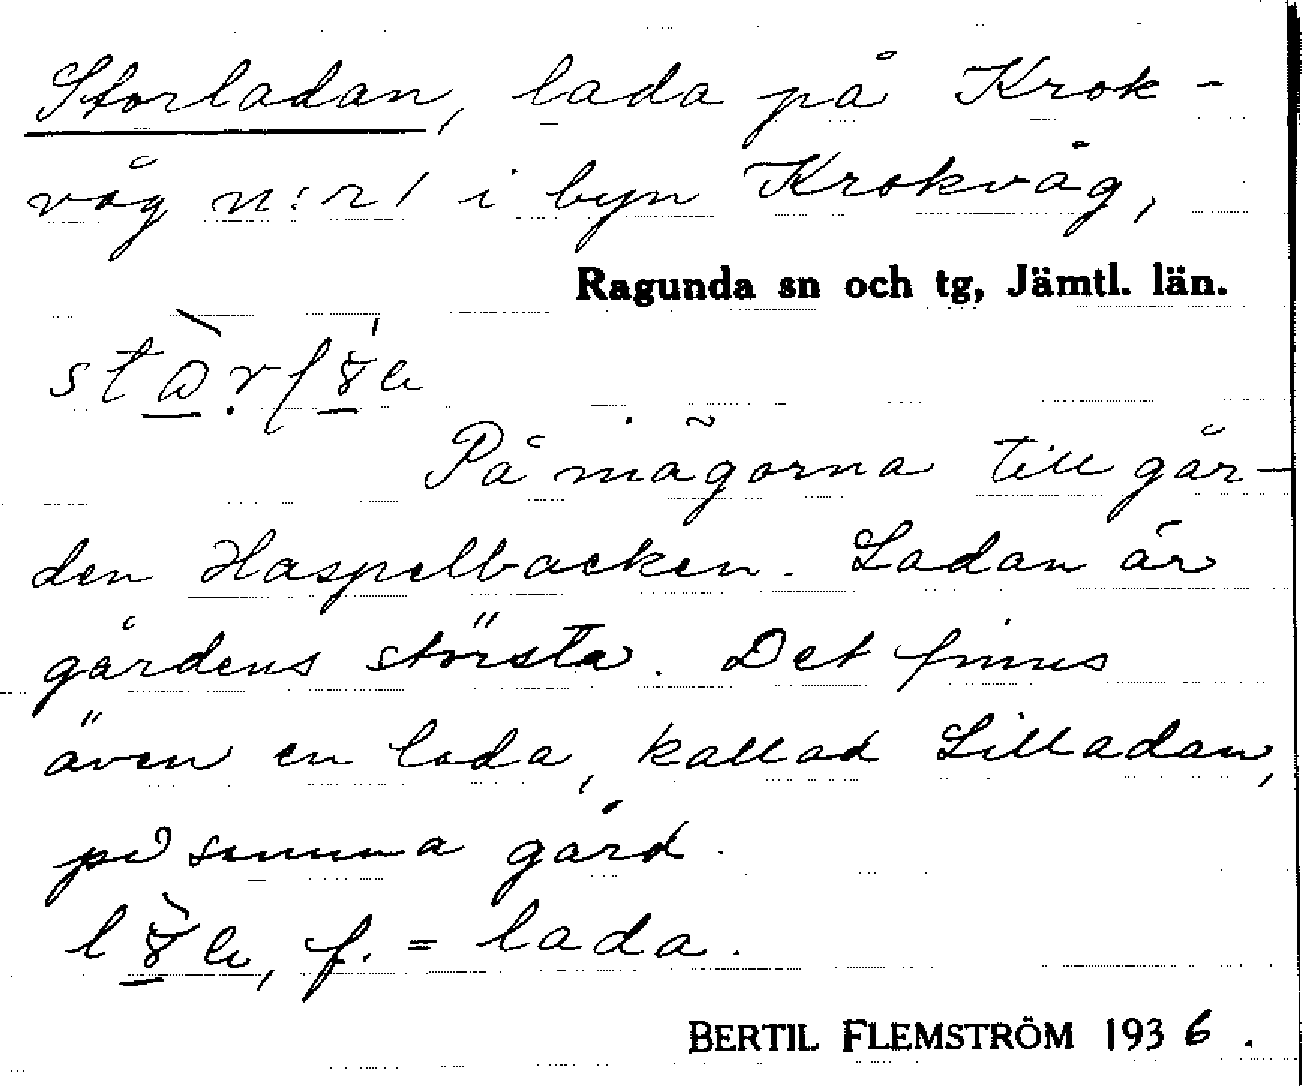 Storladan, lada på Krok-
våg n:r 1 i byn Krokvåg,
Ragunda sn och tg, Jämtl. län.
På mågorna till går-
den Haspelbacken. Ladan är
gårdens största. Det finns
även en lada, kallad Lilladan,
på samma gård.
f. = lada.
BERTIL FLEMSTRÖM 1936.